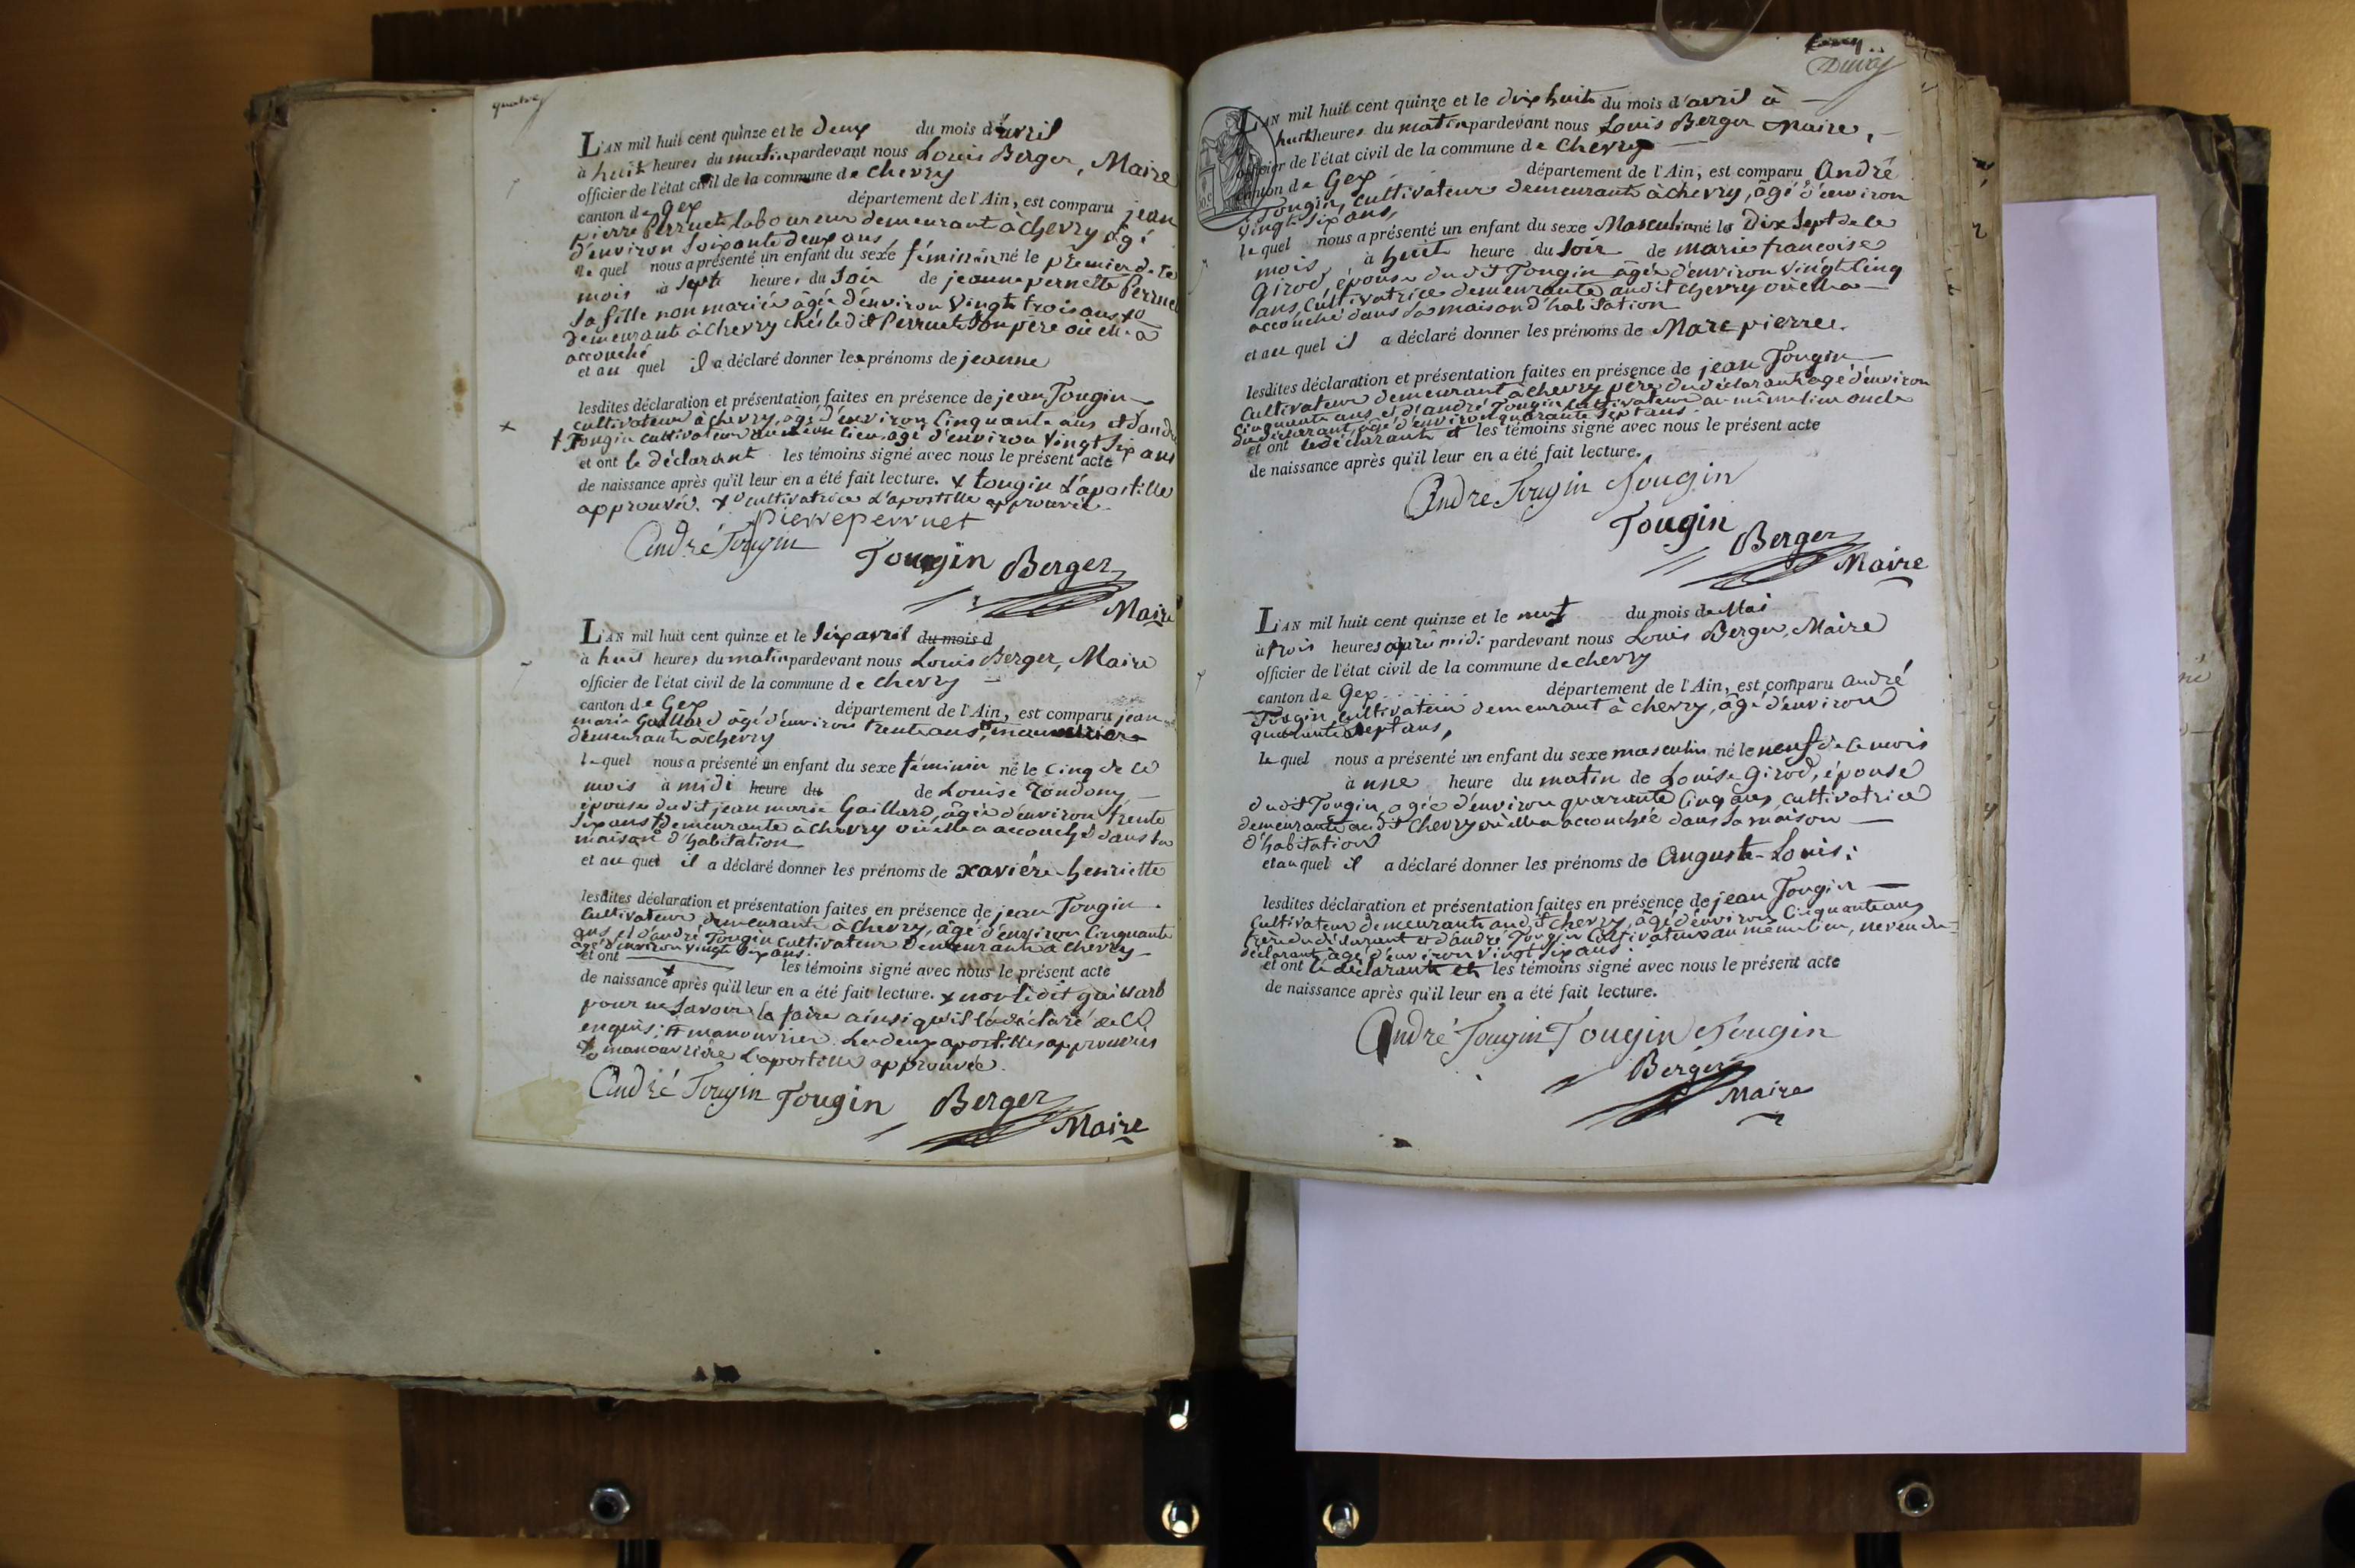 quatre
L'AN mil huit cent quinze et le deux du mois d'avril
à huit heures du matin pardevant nous Louis Berger, Maire
officier de l'état civil de la commune de chevry
canton de gex département de l'Ain, est comparu jean
pierre Perruet laboureur demeurant à chevry âgé
d'environ soixante deux ans,
le quel nous a présenté un enfant du sexe féminin né le premier de ce
mois à sept heures du soir de jeanne pernette Perruet
sa fille non mariée âgée d'environ vingt trois ans
demeurante à chevry chés le dit Perruet son père où elle a
accouché
et au quel il a déclaré donner les prénoms de jeanne
lesdites déclaration et présentation faites en présence de jean Tougin
cultivateur à chevry, âgé d'environ cinquante ans et d'andré
Tougin cultivateur au même lieu, âgé d'environ vingt six ans
et ont le déclarant les témoins signé avec nous le présent acte
de naissance après qu'il leur en a été fait lecture. x tougin L'apostille
approuvée. cultivatrice L'apostille approuvée.
pierre perruet
André Tougin
Tougin Berger
Maire
L'AN mil huit cent quinze et le six avril du mois d
à huit heures du matin pardevant nous Louis Berger, Maire
officier de l'état civil de la commune de chevry
canton de Gex département de l'Ain, est comparu jean
marie Gaillard âgé d'environ trente ans,
demeurant à chevry
le quel nous a présenté un enfant du sexe féminin né le cinq de ce
mois à midi heure du de Louise
épouse du dit jean marie Gaillard, âgée d'environ trente
six ans demeurante à chevry où elle a accouché dans sa
maison d'habitation
et au quel il a déclaré donner les prénoms de xavière henriette
lesdites déclaration et présentation faites en présence de jean Tougin
cultivateur demeurant à chevry, âgé d'environ cinquante
ans et d'andré Tougin cultivateur demeurant à chevry
âgé d'environ vingt six ans.
et ont les témoins signé avec nous le présent acte
de naissance après qu'il leur en a été fait lecture. x non le dit gaillard
pour ne savoir le faire ainsi qu'il l'a déclaré de ce
enquis; manouvrier. Les deux apostilles approuvées
manouvrière L'apostille approuvée.
André Tougin Tougin Berger
Maire
L'AN mil huit cent quinze et le dix huit du mois d'avril à
huit heures du matin pardevant nous Louis Berger Maire,
officier de l'état civil de la commune de chevry
canton de Gex département de l'Ain, est comparu André
Tougin, cultivateur demeurant à chevry, âgé d'environ
vingt six ans,
le quel nous a présenté un enfant du sexe Masculin né le Dix Sept de ce
mois à huit heure du soir de marie françoise
Girod, épouse du dit Tougin âgée d'environ vingt cinq
ans, cultivatrice demeurante audit chevry où elle a
accouché dans sa maison d'habitation
et au quel il a déclaré donner les prénoms de Marc pierre.
lesdites déclaration et présentation faites en présence de jean Tougin
cultivateur demeurant à chevry père du déclarant âgé d'environ
cinquante ans et d'andré Tougin cultivateur au même lieu oncle
du déclarant, âgé d'environ quarante sept ans.
et ont le déclarant et les témoins signé avec nous le présent acte
de naissance après qu'il leur en a été fait lecture.
André Tougin Tougin
Tougin Berger
Maire
L'AN mil huit cent quinze et le neuf du mois de Mai
à trois heures après midi pardevant nous Louis Berger, Maire
officier de l'état civil de la commune de chevry
canton de gex département de l'Ain, est comparu André
Tougin, cultivateur demeurant à chevry, âgé d'environ
quarante sept ans,
le quel nous a présenté un enfant du sexe masculin né le neuf de ce mois
à une heure du matin de Louise Girod, épouse
du dit Tougin, agée d'environ quarante cinq ans, cultivatrice
demeurante audit chevry où elle a accouchée dans sa maison
d'habitation
et au quel il a déclaré donner les prénoms de Auguste-Louis:
lesdites déclaration et présentation faites en présence de jean Tougin
cultivateur demeurant audit chevry, âgé d'environ cinquante ans
frère du déclarant et d'andré Tougin cultivateur au même lieu, neveu du
déclarant, âgé d'environ vingt six ans
et ont le déclarant et les témoins signé avec nous le présent acte
de naissance après qu'il leur en a été fait lecture.
André Tougin Tougin Tougin
Berger
Maire